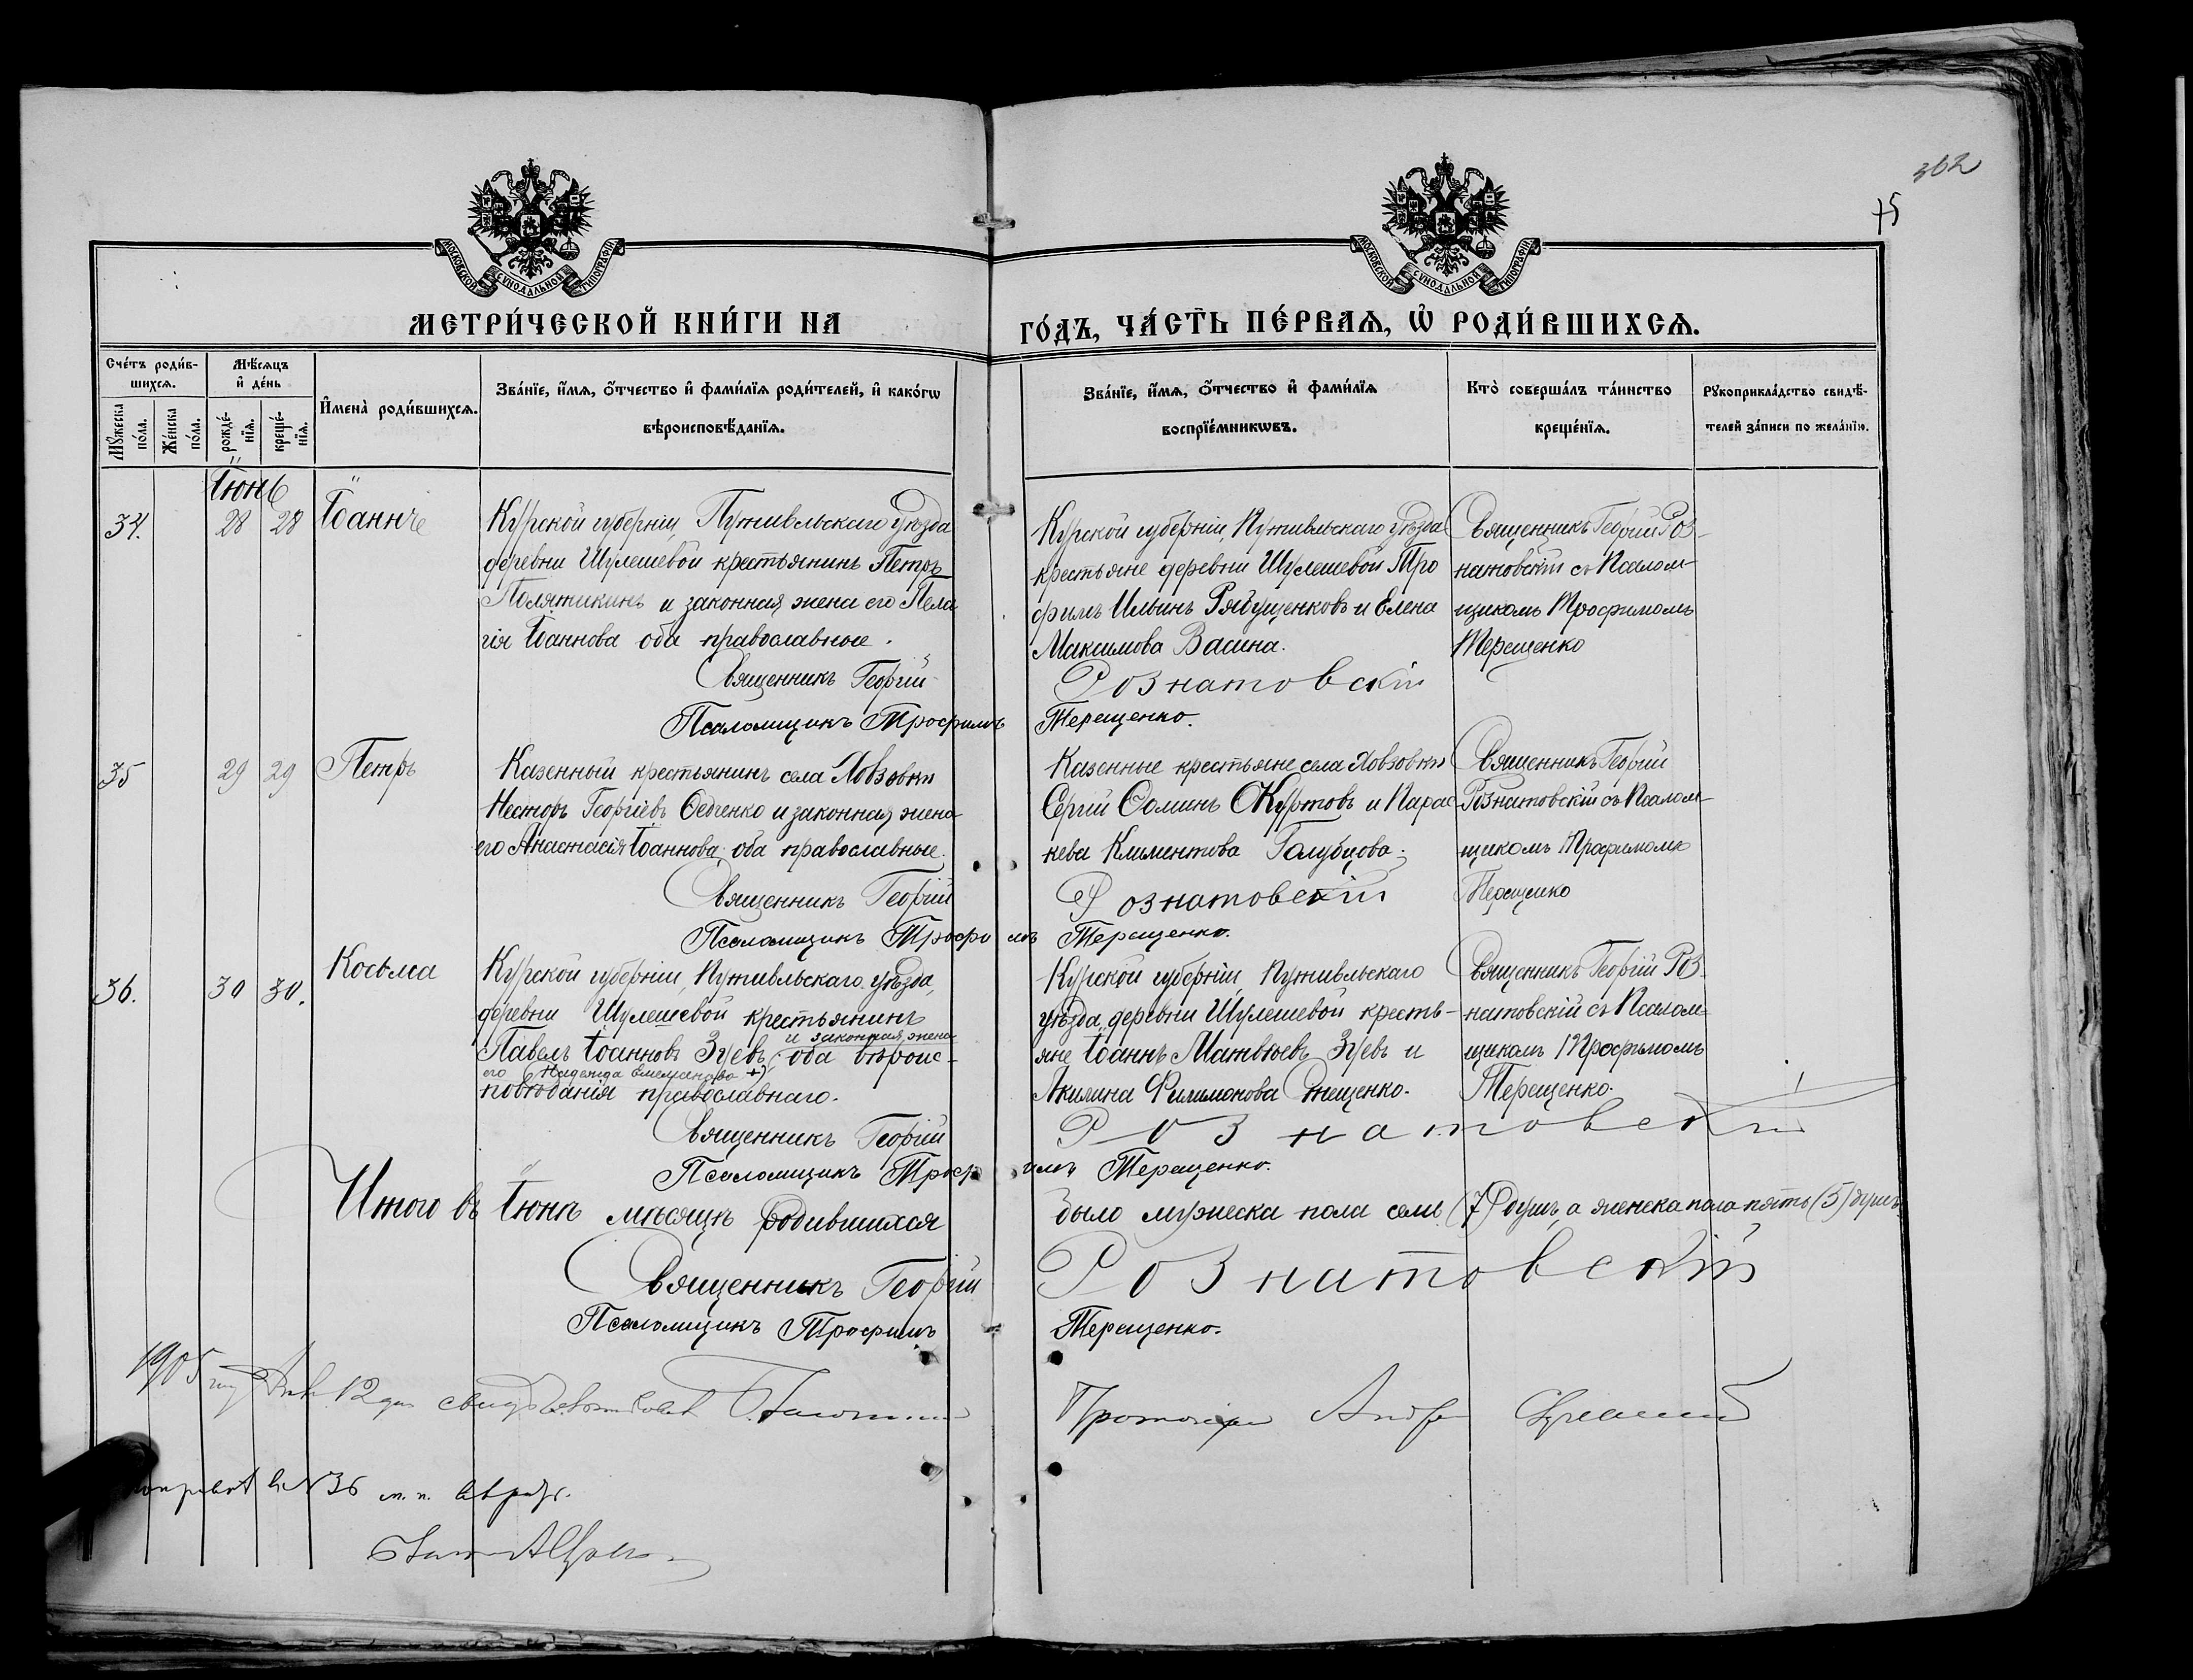 362
75
МОСКОВСКОЙ СѴНОДАЛЬНОЙ ТИПОГРАФІИ
МОСКОВСКОЙ СѴНОДАЛЬНОЙ ТИПОГРАФІИ
МЕТРИ́ЧЕСКОЙ КНИ́ГИ НА
ГО́ДЪ, ЧА́СТЬ ПЕ́РВАЯ, Ѡ҆ РОДИ́ВШИХСЯ.
Сче́тъ роди́в-
шихся.
Мꙋжеска по́ла.
Же́нска по́ла.
Мѣ́сяцъ
и҆ де́нь
рожде́-
нїя.
креще́-
нїя.
И҆мена̀ роди́вшихся.
Зва́нїе, и҆́мя, ѻ҆́тчество и҆ фами́лїя роди́телей, и҆ како́гѡ
вѣроисповѣ́данїя.
Зва́нїе, и҆́мя, ѻ҆́тчество и҆ фами́лїя
воспрїе́мникѡвъ.
Кто̀ соверша́лъ та́инство
креще́нїя.
Рꙋкоприкла́дство свидѣ́-
телей за́писи по жела́нїю.
Іюнь
34.
28
28
Іоаннъ
Курской губерніи, Путивльскаго уѣзда
деревни Шулешевой крестьянинъ Петръ
и законная жена его Пела
гія Іоаннова оба православные.
Священникъ Георгій
Псаломщикъ Трофимъ
Курской губерніи, Путивльскаго уѣзда
крестьяне деревни Шулешевой Тро
фимъ Ильинъ Рябущенковъ и Елена
Максимова Васина.
Розна­товскій
Терещенко.
Священникъ Георгій Роз-
натовскій съ Псалом-
щикомъ Трофимомъ
Терещенко
35
29
29
Петръ
Казенный крестьянинъ села Ховзовки
Несторъ Георгіевъ Федченко и законная жена
его Анастасія Іоаннова, оба православные.
Священникъ Георгій
Псаломщикъ Трофимъ
Казенные крестьяне села Ховзовки
Сергій Фоминъ и Парас
кева Климентова Голубцова.
Рознатовскій
Терещенко.
Священникъ Георгій
Рознатовскій съ Псалом-
щикомъ Трофимомъ
Терещенко
36.
30
30.
Косьма
Курской губерніи, Путивльскаго уѣзда,
деревни Шулешевой крестьянинъ
и законная жена
Павелъ Іоанновъ Зуевъ, оба вѣроис-
его (Надежда Емельянова +)
повѣданія православнаго.
Священникъ Георгій
Псаломщикъ Трофимъ
Курской губерніи, Путивльскаго
уѣзда, деревни Шулешевой кресть-
яне Іоаннъ Матвѣевъ Зуевъ и
Акилина Филимонова
Рознатовскій
Терещенко.
Священникъ Георгій Роз-
натовскій съ Псалом-
щикомъ Трофимомъ
Терещенко.
Итого въ Іюнѣ мѣсяцѣ родившихся
было мужеска пола семь (7) душъ, а женска пола пять (5) душъ.
Священникъ Георгій
Рознатовскій
Псаломщикъ Трофимъ
Терещенко.
1905 12 дня
Протоіерей
№ 36 м. п.